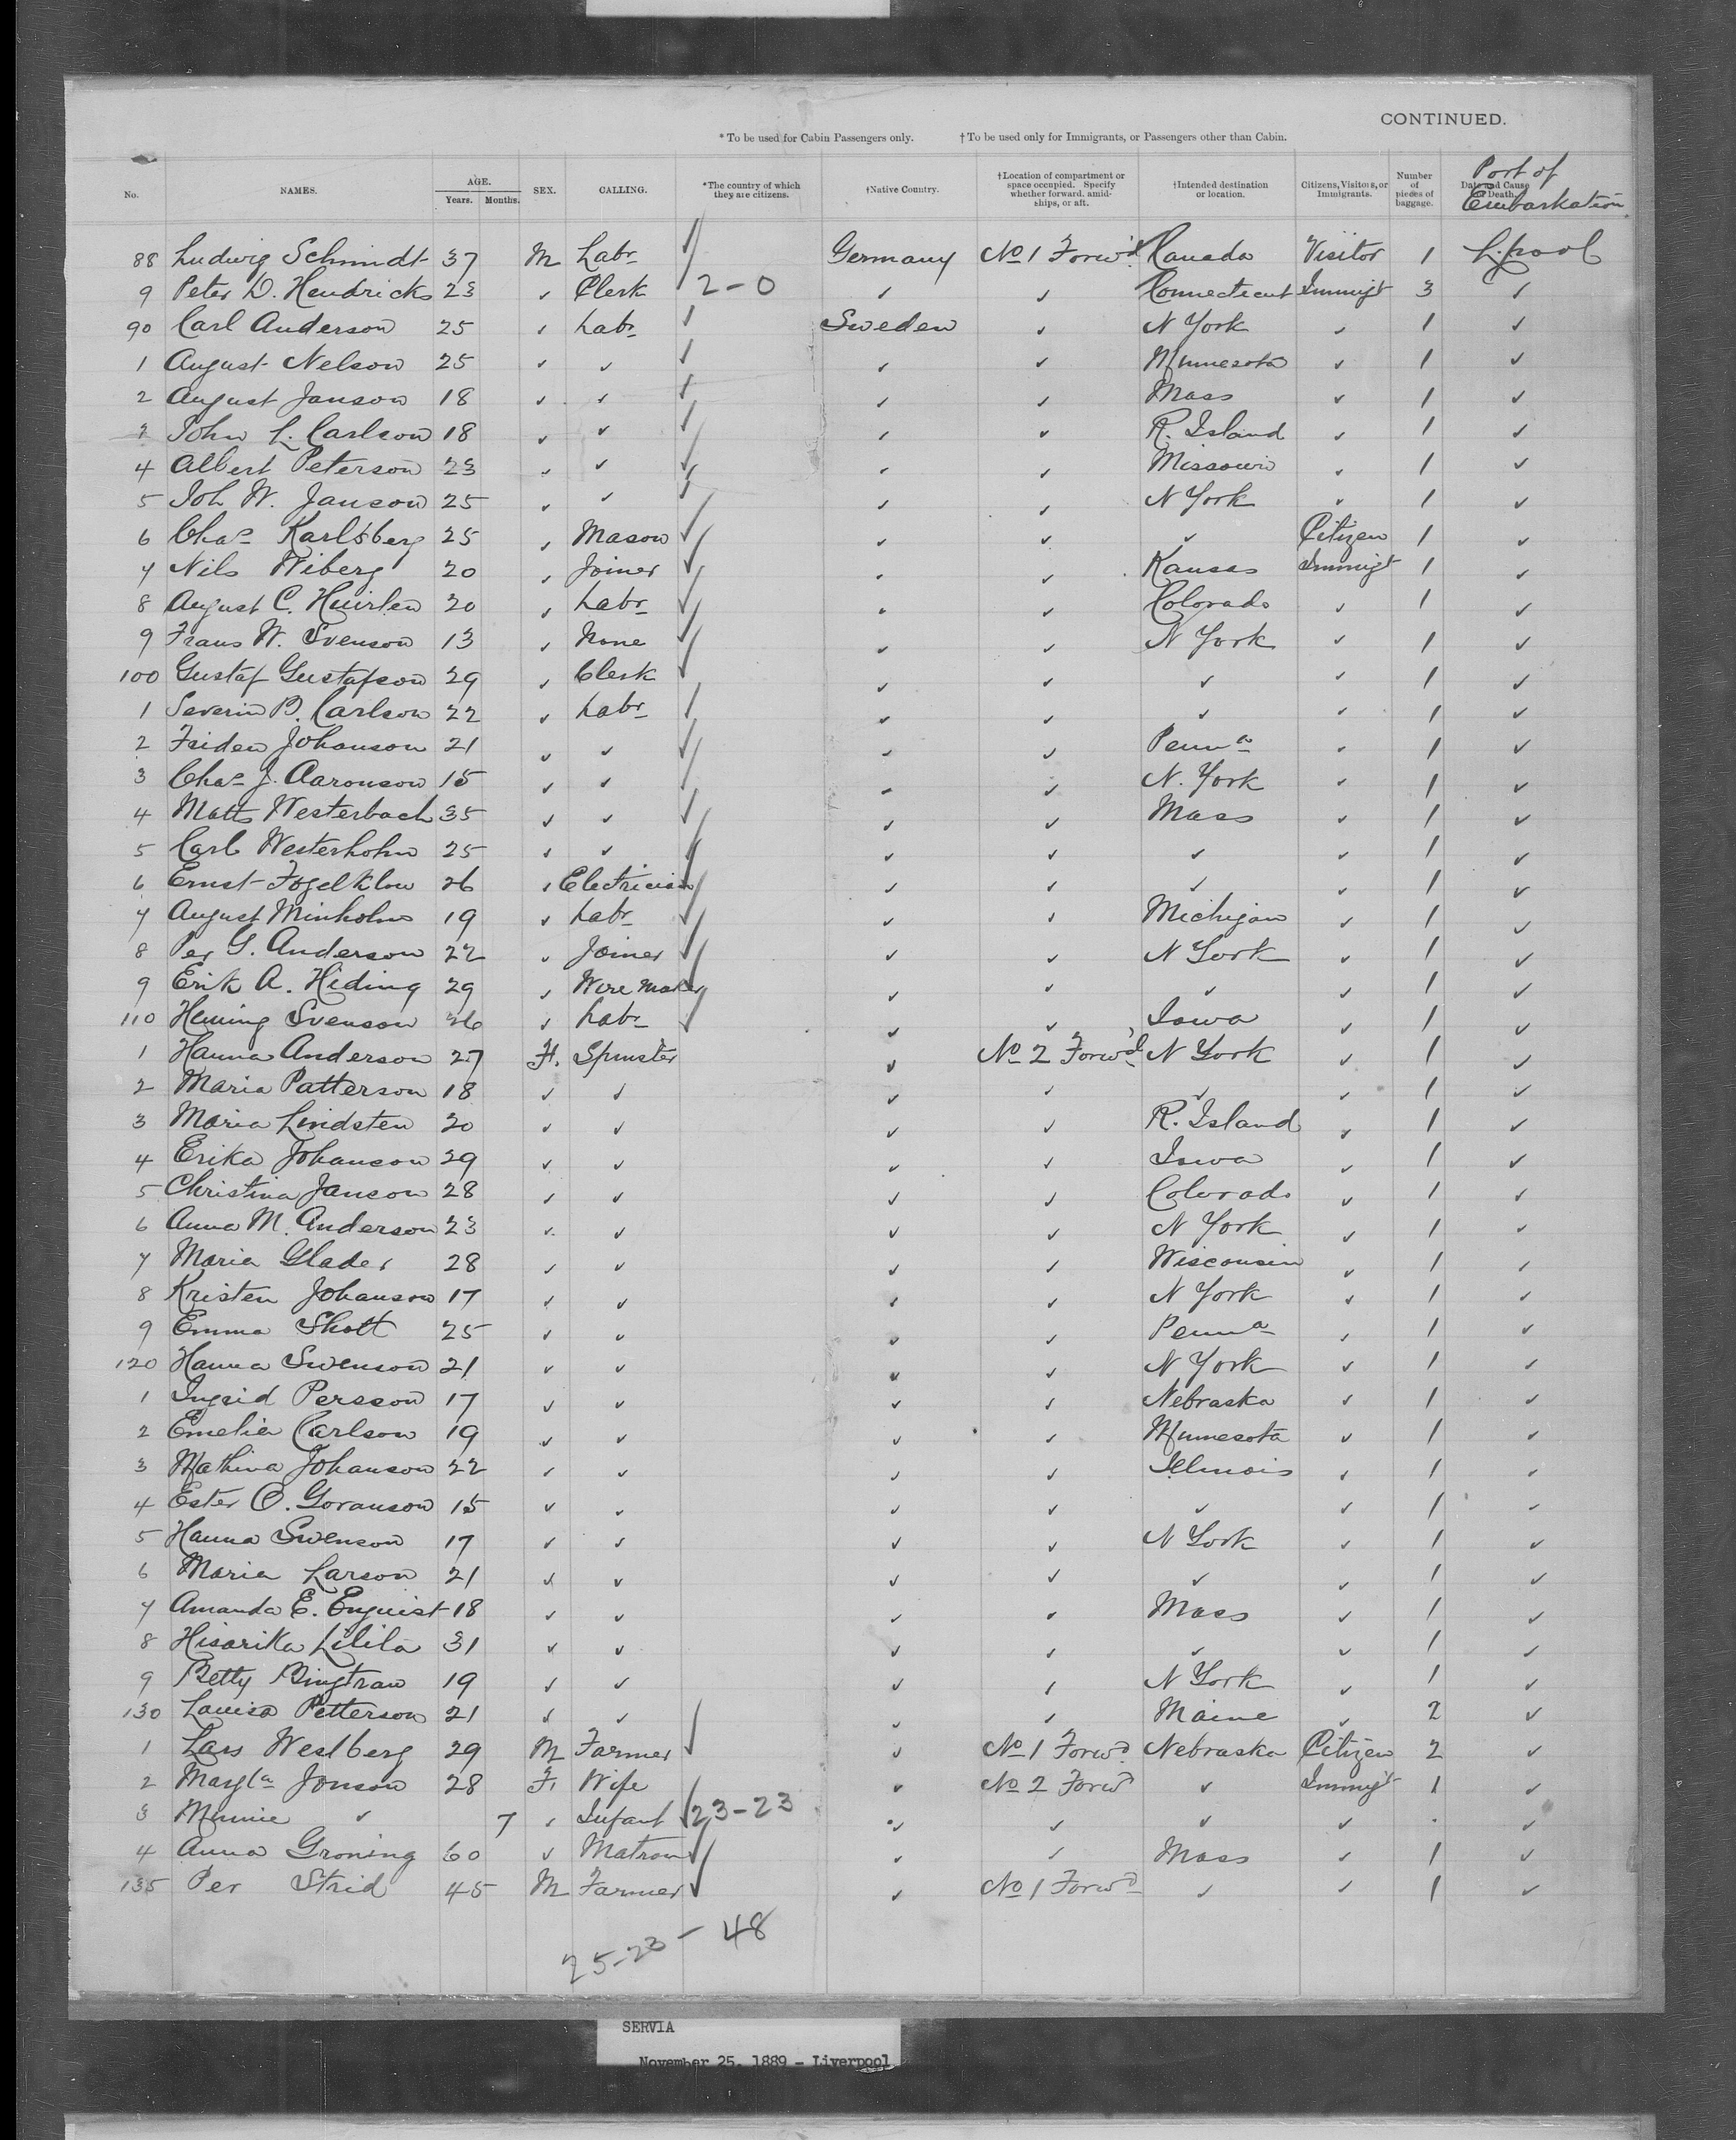 CONTINUED.
* To be used for Cabin Passengers only. † To be used only for Immigrants, or Passengers other than Cabin.
No. NAMES. AGE. Years. Months. SEX. CALLING. *The country of which they are citizens. †Native Country. †Location of compartment or space occupied. Specify whether forward, amidships, or aft. †Intended destination or location. Citizens, Visitors, or Immigrants. Number of pieces of baggage. Date and Cause of Death. Port of Embarkation
88 Ludwig Schmidt 37 M Labr Germany No 1 Forwd Canada Visitor 1 L.pool
9 Peter D. Hendricks 23 ✓ Clerk 2-0 ✓ ✓ Connecticut Immigt 3 ✓
90 Carl Anderson 25 ✓ Labr Sweden ✓ N York ✓ 1 ✓
1 August Nelson 25 ✓ ✓ ✓ ✓ Minnesota ✓ 1 ✓
2 August Janson 18 ✓ ✓ ✓ ✓ Mass ✓ 1 ✓
3 John L. Carlson 18 ✓ ✓ ✓ ✓ R. Island ✓ 1 ✓
4 Albert Peterson 23 ✓ ✓ ✓ ✓ Missouri ✓ 1 ✓
5 Joh W. Janson 25 ✓ ✓ ✓ ✓ N York ✓ 1 ✓
6 Chas Karlsberg 25 ✓ Mason ✓ ✓ ✓ ✓ Citizen 1 ✓
7 Nils Wiberg 20 ✓ Joiner ✓ ✓ ✓ Kansas Immigt 1 ✓
8 August C. 20 ✓ Labr ✓ ✓ ✓ Colorado ✓ 1 ✓
9 Frans W. Svenson 13 ✓ None ✓ ✓ ✓ N York ✓ 1 ✓
100 Gustaf Gustafson 29 ✓ Clerk ✓ ✓ ✓ ✓ ✓ 1 ✓
1 Severin B. Carlson 22 ✓ Labr ✓ ✓ ✓ ✓ 1 ✓
2 Friden Johanson 21 ✓ ✓ ✓ ✓ ✓ Penna ✓ 1 ✓
3 Chas J. Aaronson 15 ✓ ✓ ✓ ✓ N. York ✓ 1 ✓
4 Matts Westerbach 35 ✓ ✓ ✓ ✓ ✓ Mass ✓ 1 ✓
5 Carl Westerholm 25 ✓ ✓ ✓ ✓ ✓ ✓ ✓ 1 ✓
6 Ernst Fogelklow 26 ✓ Electrician ✓ ✓ ✓ ✓ ✓ 1 ✓
7 August Minholm 19 ✓ Labr ✓ ✓ ✓ Michigan ✓ 1 ✓
8 Per G. Anderson 22 ✓ Joiner ✓ ✓ ✓ N York ✓ 1 ✓
9 Erik A. Hiding 29 ✓ Wire Maker ✓ ✓ ✓ ✓ ✓ 1 ✓
110 Hening Svenson 26 ✓ Labr ✓ ✓ ✓ Iowa ✓ 1 ✓
1 Hanna Anderson 27 F. Spinster ✓ No 2 Forwd N York ✓ 1 ✓
2 Maria Patterson 18 ✓ ✓ ✓ ✓ ✓ ✓ 1 ✓
3 Maria Lindsten 20 ✓ ✓ ✓ ✓ R. Island ✓ 1 ✓
4 Erika Johanson 29 ✓ ✓ ✓ ✓ Iowa ✓ 1 ✓
5 Christina Janson 28 ✓ ✓ ✓ ✓ Colorado ✓ 1 ✓
6 Anna M. Anderson 23 ✓ ✓ ✓ ✓ N York ✓ 1 ✓
7 Maria Glader 28 ✓ ✓ ✓ ✓ Wisconsin ✓ 1 ✓
8 Kristen Johanson 17 ✓ ✓ ✓ ✓ N York ✓ 1 ✓
9 Emma Shott 25 ✓ ✓ ✓ ✓ Penna ✓ 1 ✓
120 Hanna Swenson 21 ✓ ✓ ✓ ✓ N York ✓ 1 ✓
1 Ingrid Persson 17 ✓ ✓ ✓ ✓ Nebraska ✓ 1 ✓
2 Emelia Carlson 19 ✓ ✓ ✓ ✓ Minnesota ✓ 1 ✓
3 Mathina Johanson 22 ✓ ✓ ✓ ✓ Illinois ✓ 1 ✓
4 Ester O. Goranson 15 ✓ ✓ ✓ ✓ ✓ ✓ 1 ✓
5 Hanna Swenson 17 ✓ ✓ ✓ ✓ N York ✓ 1 ✓
6 Maria Larson 21 ✓ ✓ ✓ ✓ ✓ ✓ 1 ✓
7 Amanda E. Enquist 18 ✓ ✓ ✓ ✓ Mass ✓ 1 ✓
8 Hisarika Lilila 31 ✓ ✓ ✓ ✓ ✓ ✓ 1 ✓
9 Betty Bingtran 19 ✓ ✓ ✓ ✓ N York ✓ 1 ✓
130 Louisa Petterson 21 ✓ ✓ ✓ ✓ Maine ✓ 2 ✓
1 Lars Westberg 29 M Farmer ✓ ✓ No 1 Forwd Nebraska Citizen 2 ✓
2 Maryta Jonson 28 F. Wife ✓ No 2 Forwd ✓ Immigt 1 ✓
3 Minnie ✓ 7 ✓ Infant ✓ 23-23 ✓ ✓ ✓ ✓ ✓
4 Anna Groning 60 ✓ Matron ✓ ✓ ✓ Mass ✓ 1 ✓
135 Per Strid 45 M Farmer ✓ ✓ No 1 Forwd ✓ ✓ 1 ✓
25-23 - 48
SERVIA
November 25, 1889 - Liverpool